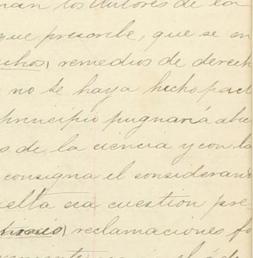 los Autores de la
que prescribe, que se en
remedios de derech
no se haya hecho
principio pugnaría
s de la ciencia y con la
consigna el considerand
elta esa cuestion pre
reclamaciones